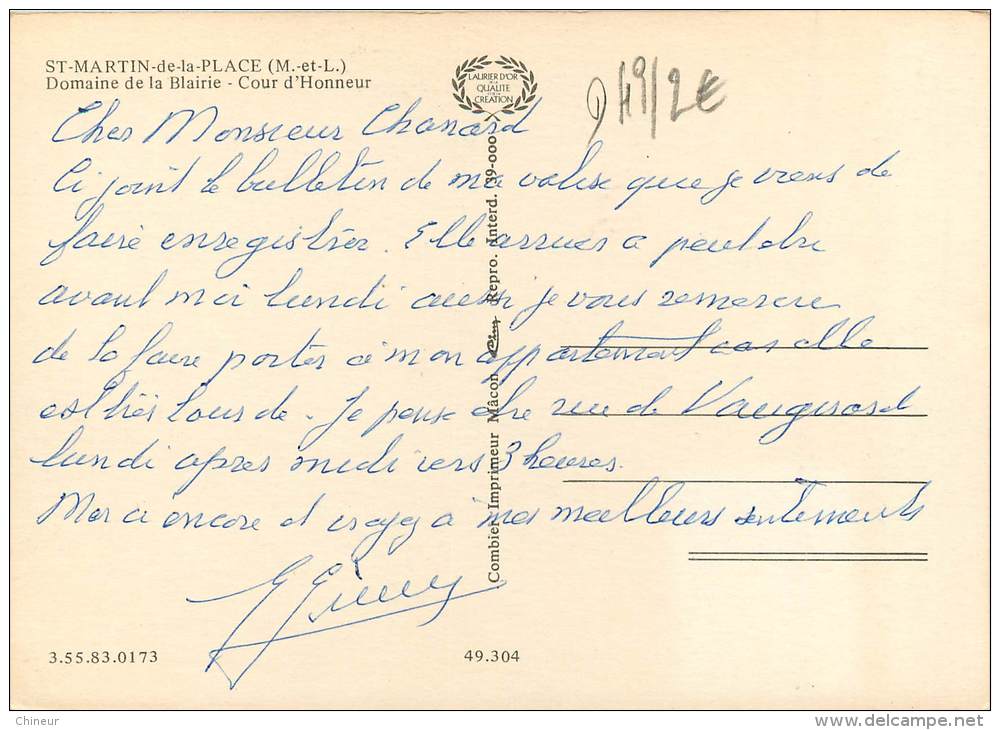 ST-MARTIN-de-la-PLACE (M.-et-L.)
Domaine de la Blairie - Cour d'Honneur
LAURIER D'OR
DE LA
QUALITE
ET DE LA
CREATION
49/2€
Cher Monsieur Chanard
Ci joint le bulletin de ma valise que je viens de
faire enregistrer. Elle arrivera peut etre
avant moi lundi aussi je vous remercie
de la faire porter à mon appartement car elle
est très lourde. Je pense etre rue de Vaugirard
lundi apres midi vers 3 heures.
Merci encore et croyez à mes meilleurs sentiments
Combier Imprimeur Mâcon Repro. Interd. 139-000
3.55.83.0173
49.304
Chineur
delcampe.net